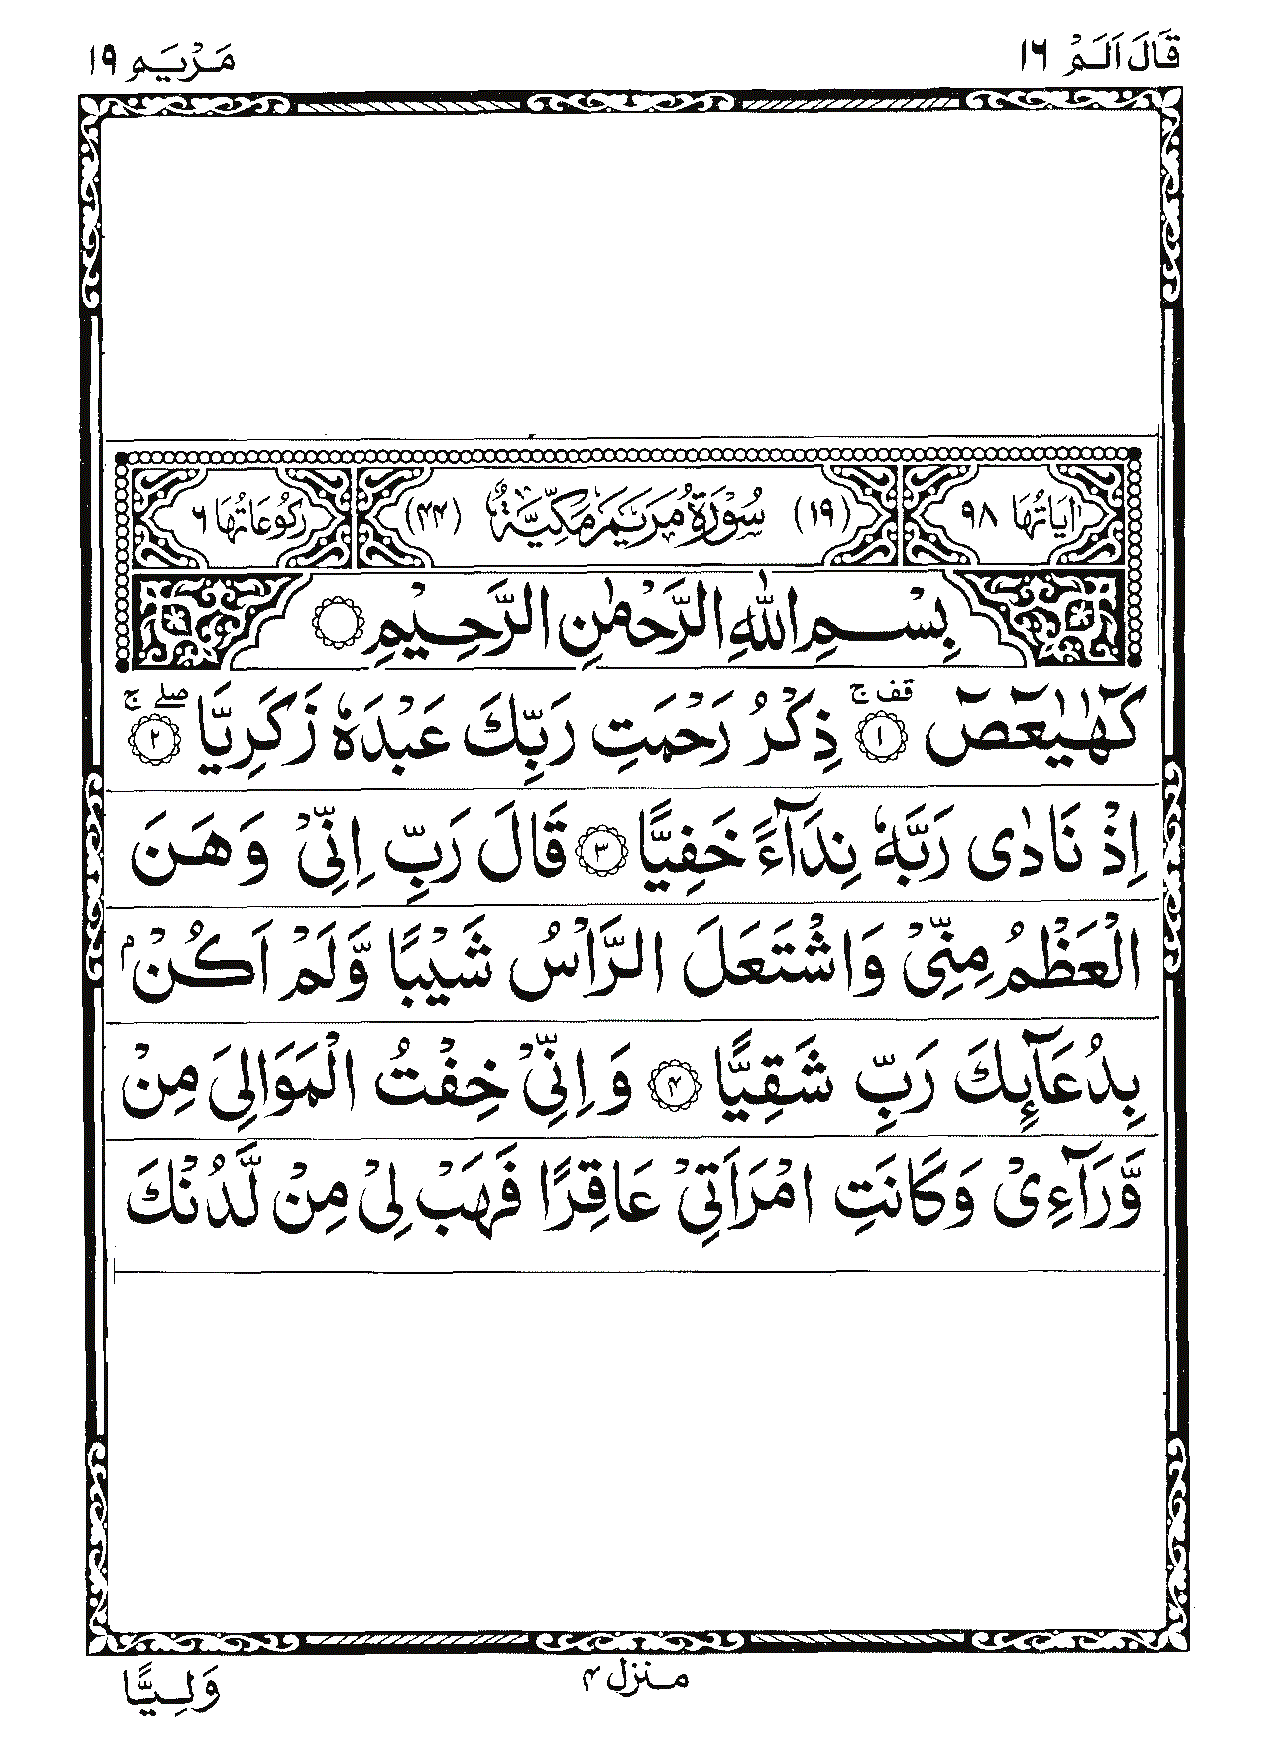 قَالَ اَلَمْ ١٦
مَرْيَم ١٩
اٰيَاتُهَا ٩٨ (١٩) سُوْرَةُ مَرْيَمَ مَكِّيَّةٌ (٤٤) رُكُوْعَاتُهَا ٦
بِسْمِ اللّٰهِ الرَّحْمٰنِ الرَّحِيْمِ
كٓهٰيٰعٓصٓ قف ج ١ ذِكْرُ رَحْمَتِ رَبِّكَ عَبْدَهٗ زَكَرِيَّا صلے ج ٢
اِذْ نَادٰى رَبَّهٗ نِدَآءً خَفِيًّا ٣ قَالَ رَبِّ اِنِّىْ وَهَنَ
الْعَظْمُ مِنِّىْ وَاشْتَعَلَ الرَّاْسُ شَيْبًا وَّلَمْ اَكُنْۢ
بِدُعَآىِٕكَ رَبِّ شَقِيًّا ٤ وَاِنِّىْ خِفْتُ الْمَوَالِىَ مِنْ
وَّرَآءِىْ وَكَانَتِ امْرَاَتِىْ عَاقِرًا فَهَبْ لِىْ مِنْ لَّدُنْكَ
مـنزل ٤
وَلِـيًّا